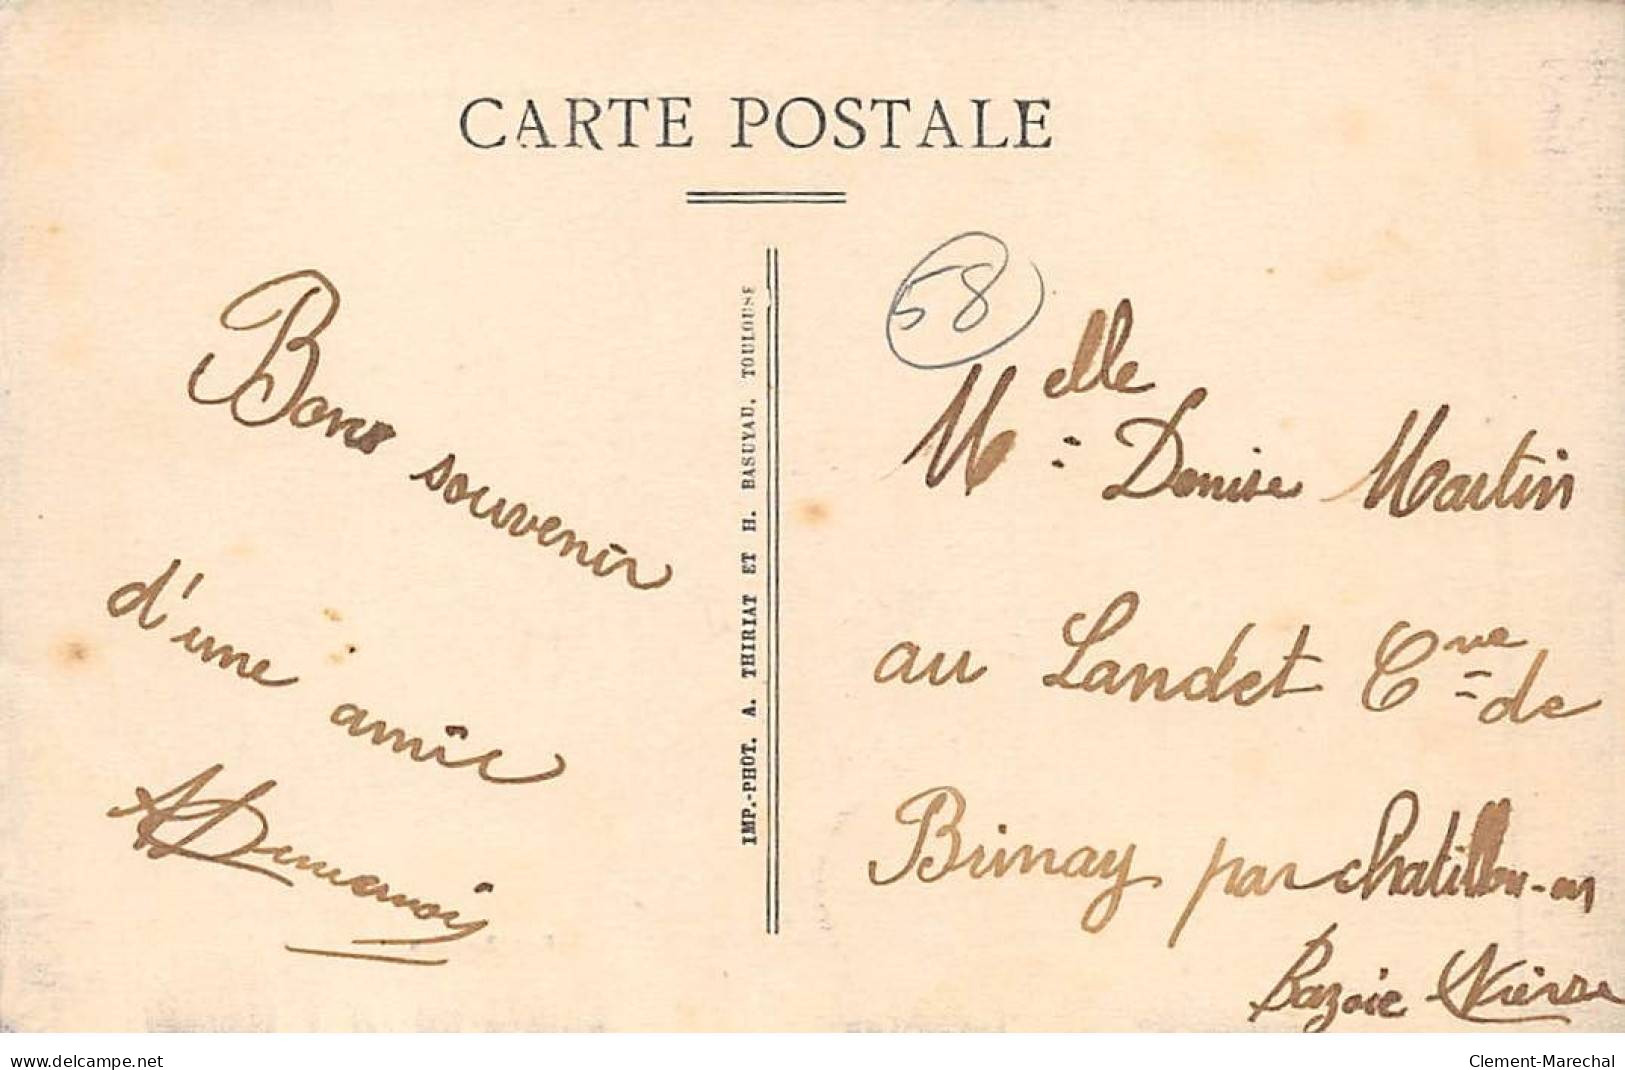 CARTE POSTALE
58
Bons souvenir
d'une amie
IMP.-PHOT. A. THIRIAT ET H. BASUYAU, TOULOUSE
Melle Denise Martin
au Landet Cne de
Brinay par chatillon-en
Bazoie Nièvre
www.delcampe.net
Clement-Marechal